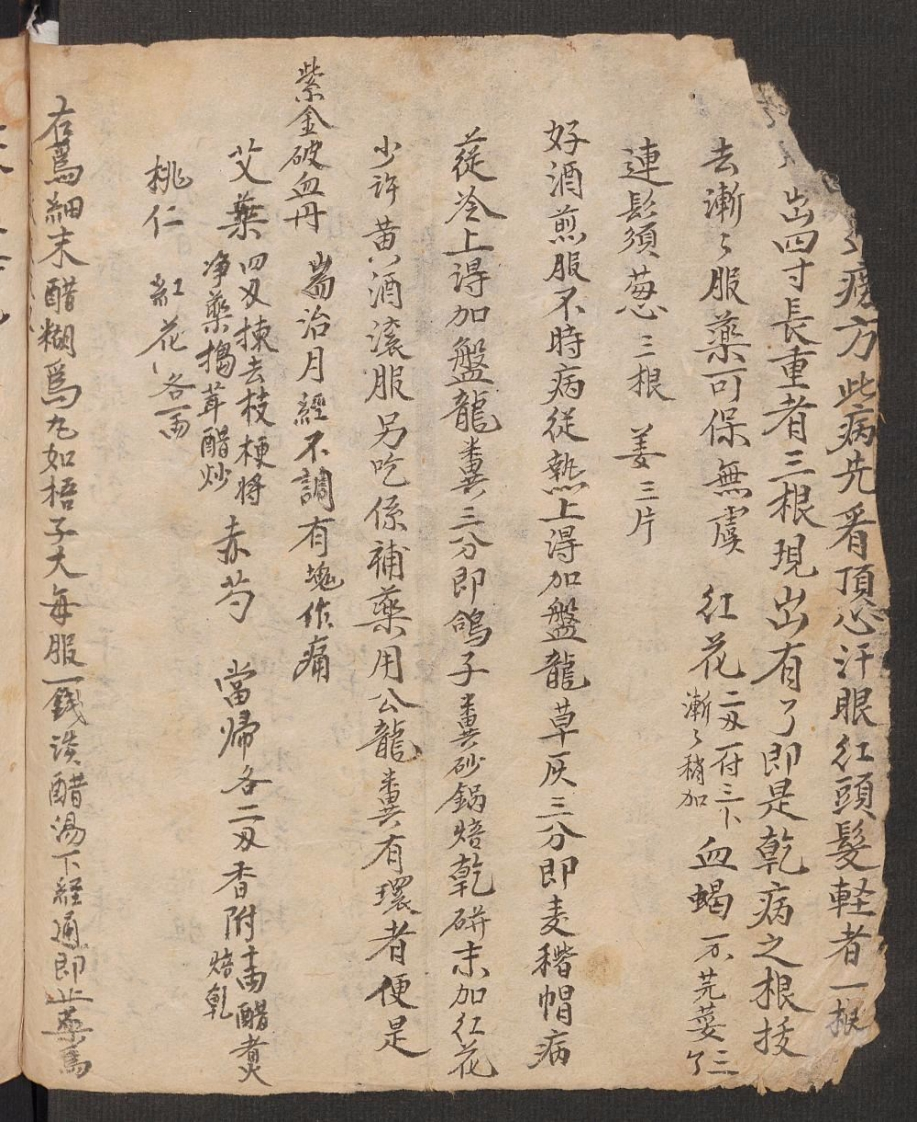 方此病先看頂心汗眼红頭髮軽者一根
出四寸長重者三根現出有了即是乾病之根拔
去漸々服薬可保無虞 红花二刄一付三下漸々稍加 血蝎一不芫荽三
連髭須葱三根 姜三片
好酒煎服不時病従熱上得加盤龍草灰三分即麦稭帽病
蓯冷上得加盤龍糞三分即鴿子糞砂鍋焙乾研末加红花
少許黄酒滚服另吃係補藥用公龍糞有環者便是
紫金破血丹 耑治月經不調有塊作痛
艾藥四刄揀去枝梗將净藥搗茸醋炒 赤芍 當帰各二刄香附十両醋煮焙乾
桃仁 紅花各一両
右爲細末醋糊爲丸如梧子大每服一錢淡醋湯下経通即止藥爲